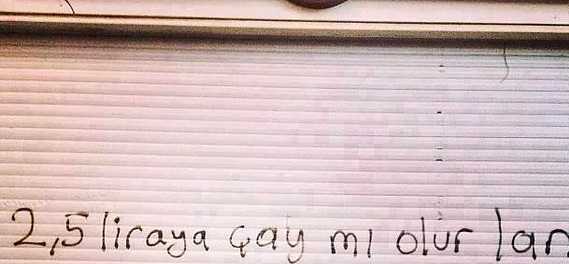 2,5 liraya çay mı olur lan